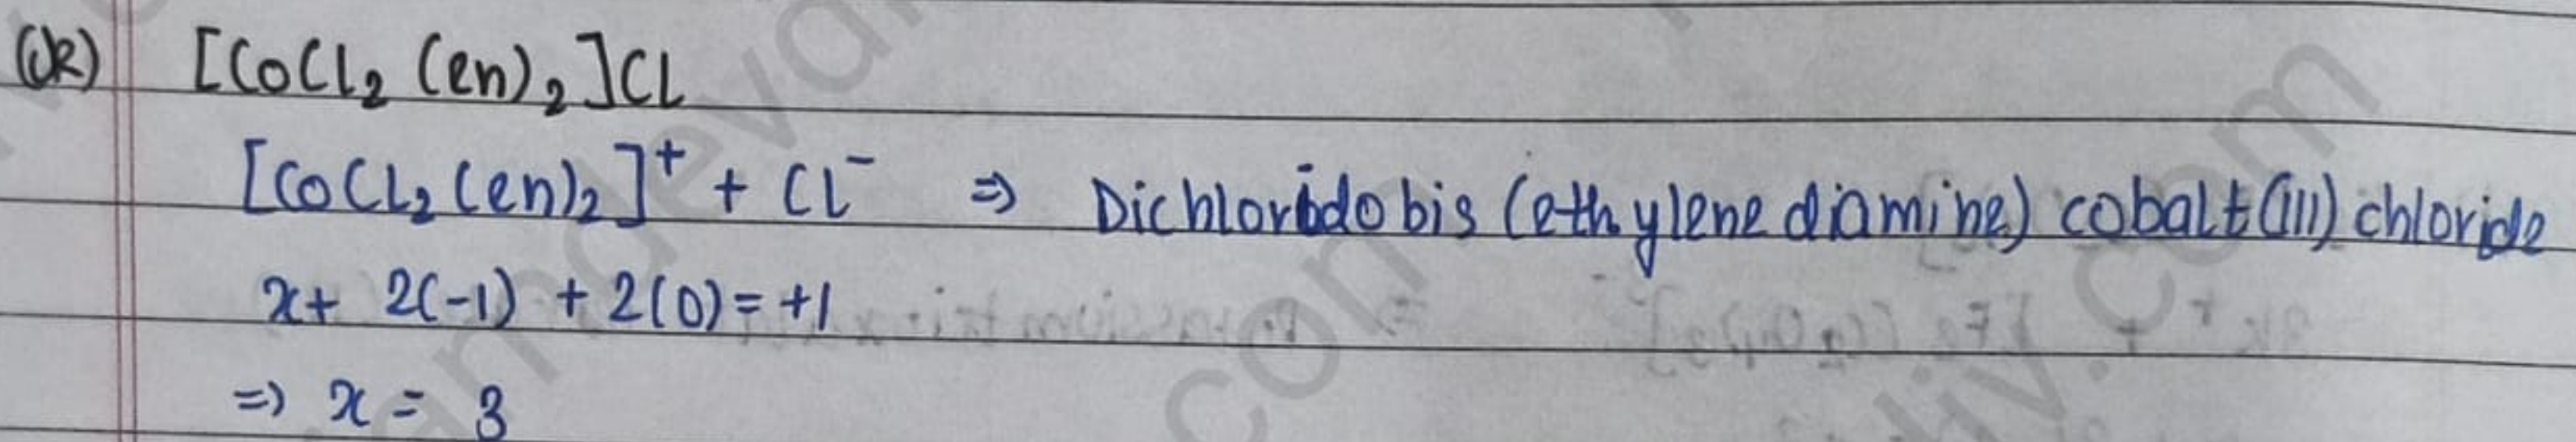 (k) [CoCl₂ (en)₂]Cl
[CoCl₂(en)₂]⁺ + Cl⁻ ⇒ Dichlorido bis (ethylene diamine) cobalt (III) chloride
x + 2(-1) + 2(0) = +1
⇒ x = 3